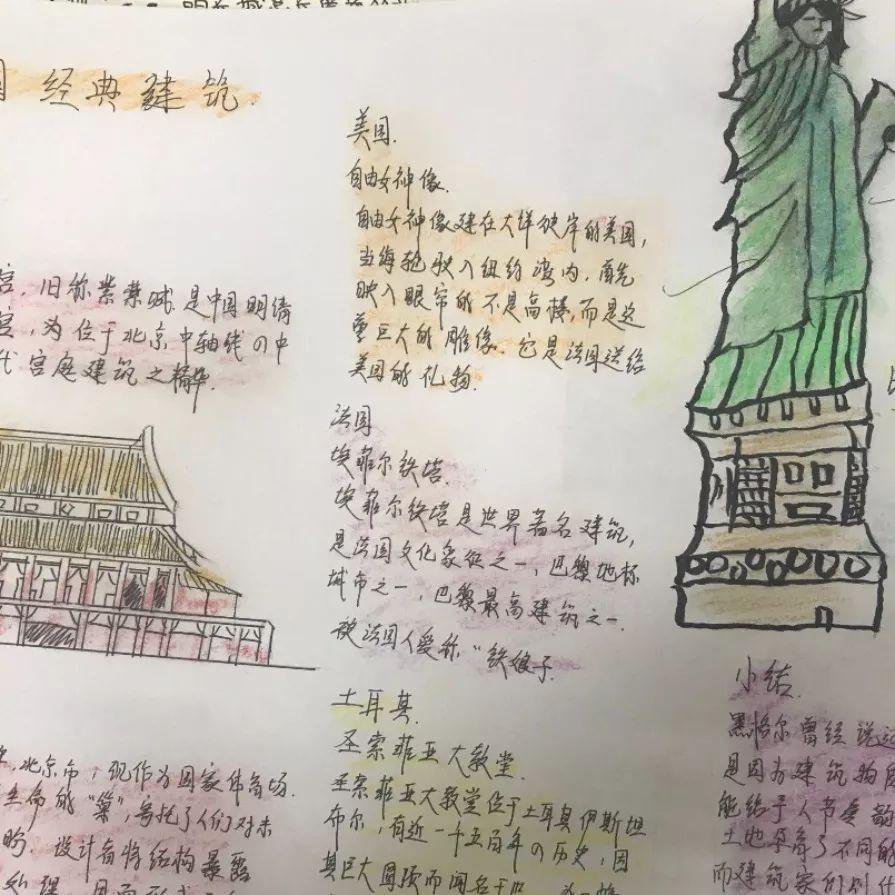 经典建筑.
宫,旧称紫禁城.是中国明清
宫,为位于北京中轴线の中
代宫庭建筑之精华.
美国.
自由女神像.
自由女神像建在大洋彼岸的美国,
当海轮驶入纽约湾内,首先
映入眼帘的不是高楼,而是这
尊巨大的雕像.它是法国送给
美国的礼物.
法国
埃菲尔铁塔.
埃菲尔铁塔是世界著名建筑,
是法国文化象征之一,巴黎地标
城市之一,巴黎最高建筑之一.
被法国人爱称"铁娘子
土耳其.
圣索菲亚大教堂.
圣索菲亚大教堂位于土耳其伊斯坦
布尔,有近一千五百年の历史,因
其巨大圆顶而闻名于世,
北京市;现作为国家体育场.
生命的"巢",寄托了人们对未
盼.设计者将结构暴露
小结.
黑格尔曾经说过
是因为建筑物
能给于人节奏韵
土地孕育了不同的
而建筑家们